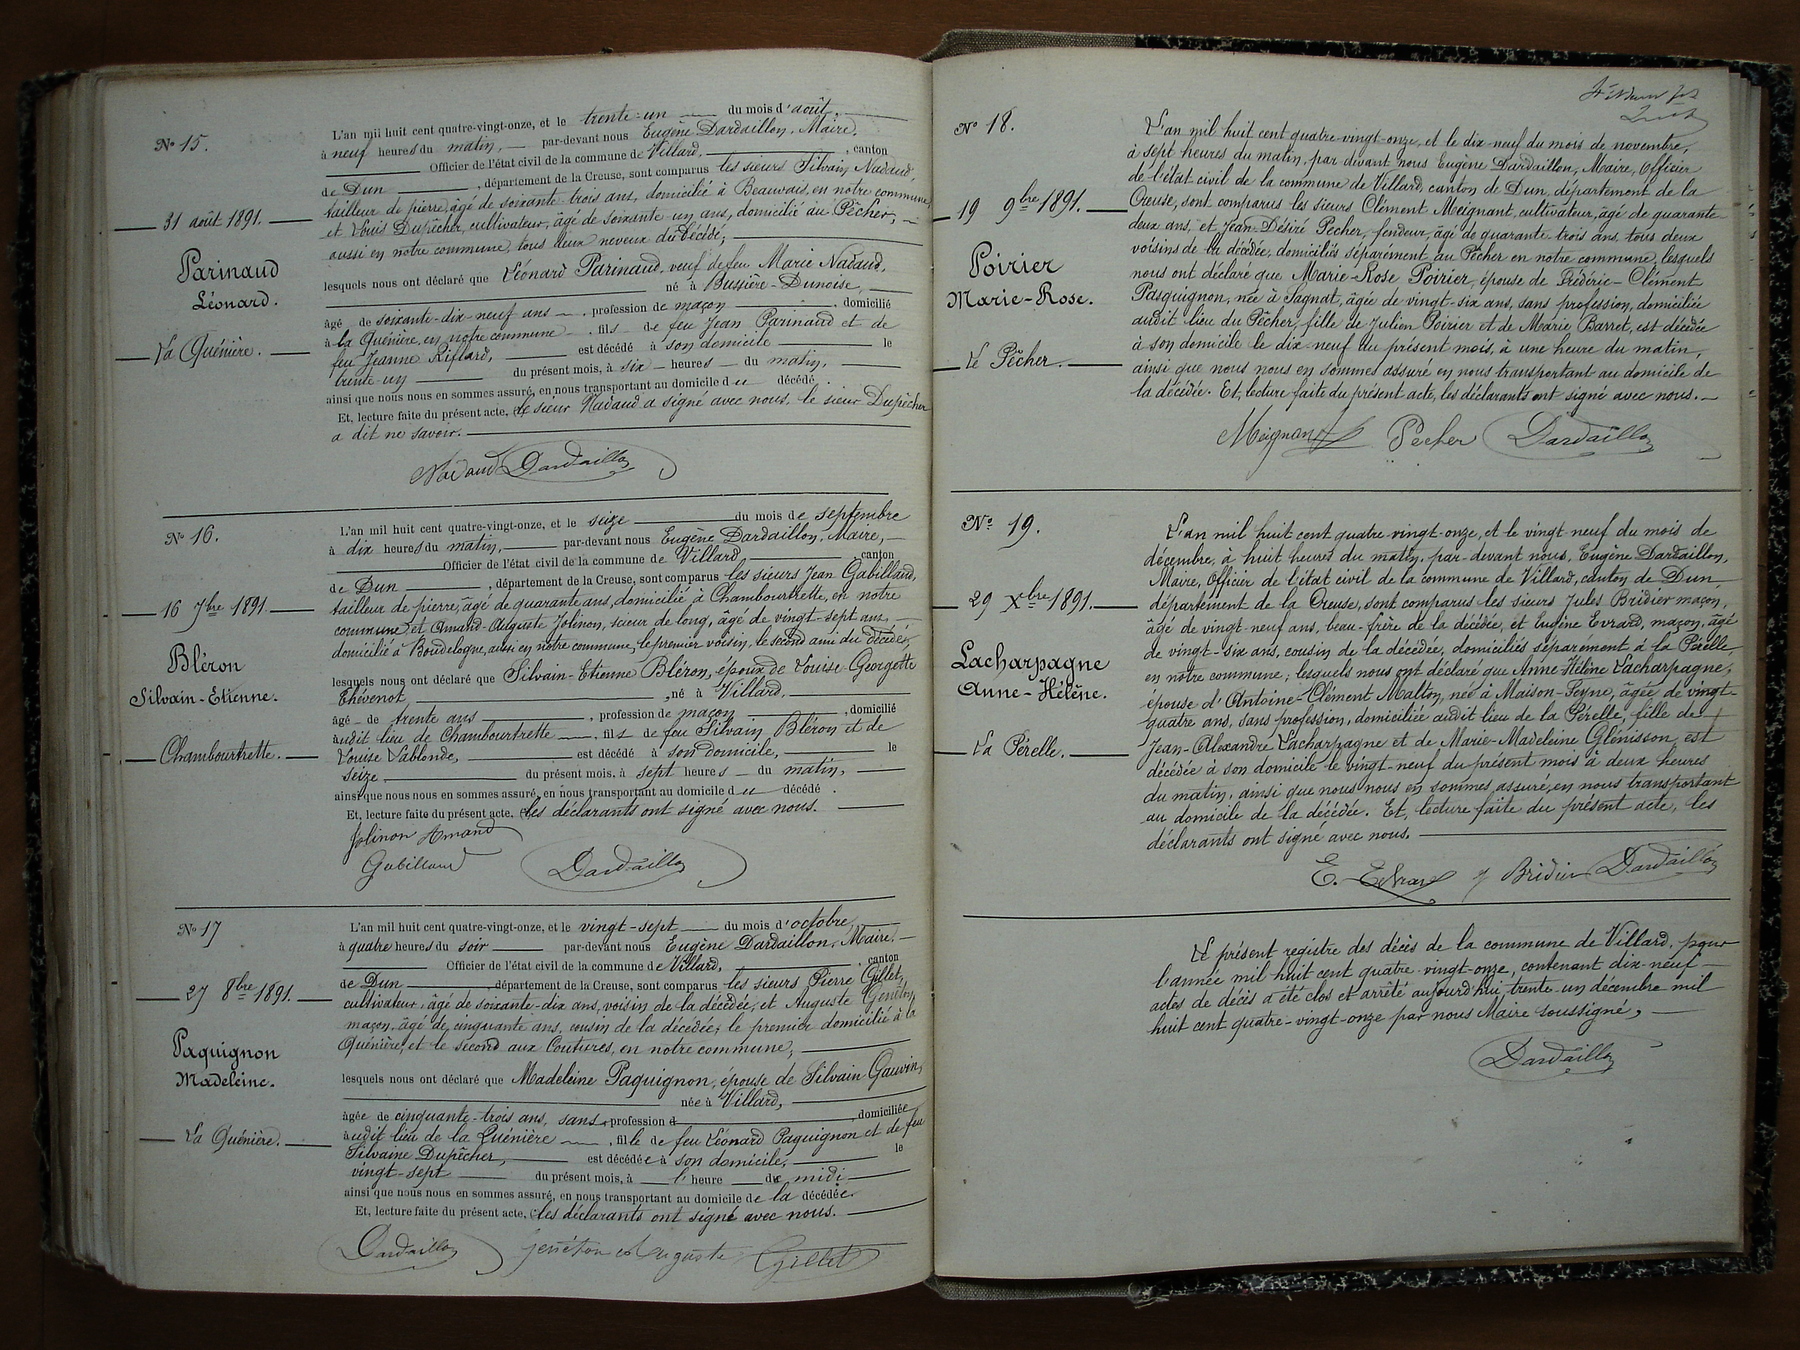 Nº 15.
31 août 1891.
Parinaud
Léonard.
La Quénière.
L'an mil huit cent quatre-vingt-onze, et le trente-un du mois d'août,
à neuf heures du matin, par-devant nous Eugène Dardaillon, Maire,
Officier de l'état civil de la commune de Villard, canton
de Dun, département de la Creuse, sont comparus les sieurs Silvain Nadaud,
tailleur de pierre, âgé de soixante-trois ans, domicilié à Beauvais, en notre commune,
et Louis Dupêcher, cultivateur, âgé de soixante-un ans, domicilié au Pêcher,
aussi en notre commune, tous deux neveux du décédé;
lesquels nous ont déclaré que Léonard Parinaud, veuf de feu Marie Nadaud,
né à Bussière-Dunoise,
âgé de soixante-dix-neuf ans, profession de maçon, domicilié
à la Quénière, en notre commune, fils de feu Jean Parinaud et de
feu Jeanne Riffard, est décédé à son domicile le
trente-un du présent mois, à six heures du matin,
ainsi que nous nous en sommes assuré, en nous transportant au domicile du décédé.
Et, lecture faite du présent acte, le sieur Nadaud a signé avec nous, le sieur Dupêcher
a dit ne savoir.
Nadaud Dardaillon
Nº 16.
16 7bre 1891.
Bléron
Silvain-Etienne.
Chambourtrette.
L'an mil huit cent quatre-vingt-onze, et le seize du mois de septembre
à dix heures du matin, par-devant nous Eugène Dardaillon, Maire,
Officier de l'état civil de la commune de Villard, canton
de Dun, département de la Creuse, sont comparus les sieurs Jean Gabillaud,
tailleur de pierre, âgé de quarante ans, domicilié à Chambourtrette, en notre
commune, et Amand-Auguste Jolinon, scieur de long, âgé de vingt-sept ans,
domicilié à Boudelogne, aussi en notre commune, le premier voisin, le second ami du décédé;
lesquels nous ont déclaré que Silvain-Etienne Bléron, époux de Louise-Georgette
Thévenot, né à Villard,
âgé de trente ans, profession de maçon, domicilié
audit lieu de Chambourtrette, fils de feu Silvain Bléron et de
Louise Lablonde, est décédé à son domicile, le
seize du présent mois, à sept heures du matin,
ainsi que nous nous en sommes assuré, en nous transportant au domicile du décédé.
Et, lecture faite du présent acte, les déclarants ont signé avec nous.
Jolinon Amand
Gabillaud Dardaillon
Nº 17
27 8bre 1891.
Paquignon
Madeleine.
La Quénière.
L'an mil huit cent quatre-vingt-onze, et le vingt-sept du mois d'octobre,
à quatre heures du soir par-devant nous Eugène Dardaillon, Maire,
Officier de l'état civil de la commune de Villard, canton
de Dun, département de la Creuse, sont comparus les sieurs Pierre Gillet,
cultivateur, âgé de soixante-dix ans, voisin de la décédée, et Auguste Genéton,
maçon, âgé de cinquante ans, cousin de la décédée; le premier domicilié à la
Quénière, et le second aux Coutures, en notre commune;
lesquels nous ont déclaré que Madeleine Paquignon, épouse de Silvain Gauvin,
née à Villard,
âgée de cinquante-trois ans, sans profession d, domiciliée
audit lieu de la Quénière, fille de feu Léonard Paquignon et de feu
Silvaine Dupêcher, est décédée à son domicile, le
vingt-sept du présent mois, à l'heure de midi
ainsi que nous nous en sommes assuré, en nous transportant au domicile de la décédée.
Et, lecture faite du présent acte, les déclarants ont signé avec nous.
Dardaillon jenéton Auguste Gillet
Nº 18.
19 9bre 1891.
Poirier
Marie-Rose.
Le Pêcher.
L'an mil huit cent quatre-vingt-onze, et le dix-neuf du mois de novembre,
à sept heures du matin, par-devant nous Eugène Dardaillon, Maire, Officier
de l'état civil de la commune de Villard, canton de Dun, département de la
Creuse, sont comparus les sieurs Clément Meignant, cultivateur, âgé de quarante-
deux ans, et Jean-Désiré Pecher, fendeur, âgé de quarante-trois ans, tous deux
voisins de la décédée, domiciliés séparément au Pêcher en notre commune, lesquels
nous ont déclaré que Marie-Rose Poirier, épouse de Frédéric-Clément
Pasquignon, née à Sagnat, âgée de vingt-six ans, sans profession, domiciliée
audit lieu du Pêcher, fille de Julien Poirier et de Marie Barret, est décédée
à son domicile le dix-neuf du présent mois, à une heure du matin,
ainsi que nous nous en sommes assuré en nous transportant au domicile de
la décédée. Et, lecture faite du présent acte, les déclarants ont signé avec nous.
Meignant Pecher Dardaillon
Nº 19.
29 Xbre 1891.
Lacharpagne
Anne-Hélène.
La Pérelle.
L'an mil huit cent quatre vingt-onze, et le vingt neuf du mois de
décembre, à huit heures du matin, par-devant nous, Eugène Dardaillon,
Maire, Officier de l'état civil de la commune de Villard, canton de Dun
département de la Creuse, sont comparus les sieurs Jules Bridier maçon,
âgé de vingt-neuf ans, beau-frère de la décédée, et Eugène Evrard, maçon, âgé
de vingt-six ans, cousin de la décédée, domiciliés séparément à la Pérelle,
en notre commune; lesquels nous ont déclaré que Anne Hélène Lacharpagne,
épouse d'Antoine-Clément Malton, née à Maison-Feyne, âgée de vingt-
quatre ans, sans profession, domiciliée audit lieu de la Pérelle, fille de
Jean-Alexandre Lacharpagne et de Marie-Madeleine Glénisson, est
décédée à son domicile le vingt-neuf du présent mois à deux heures
du matin, ainsi que nous nous en sommes assuré, en nous transportant
au domicile de la décédée. Et, lecture faite du présent acte, les
déclarants ont signé avec nous.
E. Evrard J Bridier Dardaillon
Le présent registre des décès de la commune de Villard, pour
l'année mil huit cent quatre-vingt-onze, contenant dix-neuf
actes de décès a été clos et arrêté aujourd'hui, trente-un décembre mil
huit cent quatre-vingt-onze par nous Maire soussigné,
Dardaillon